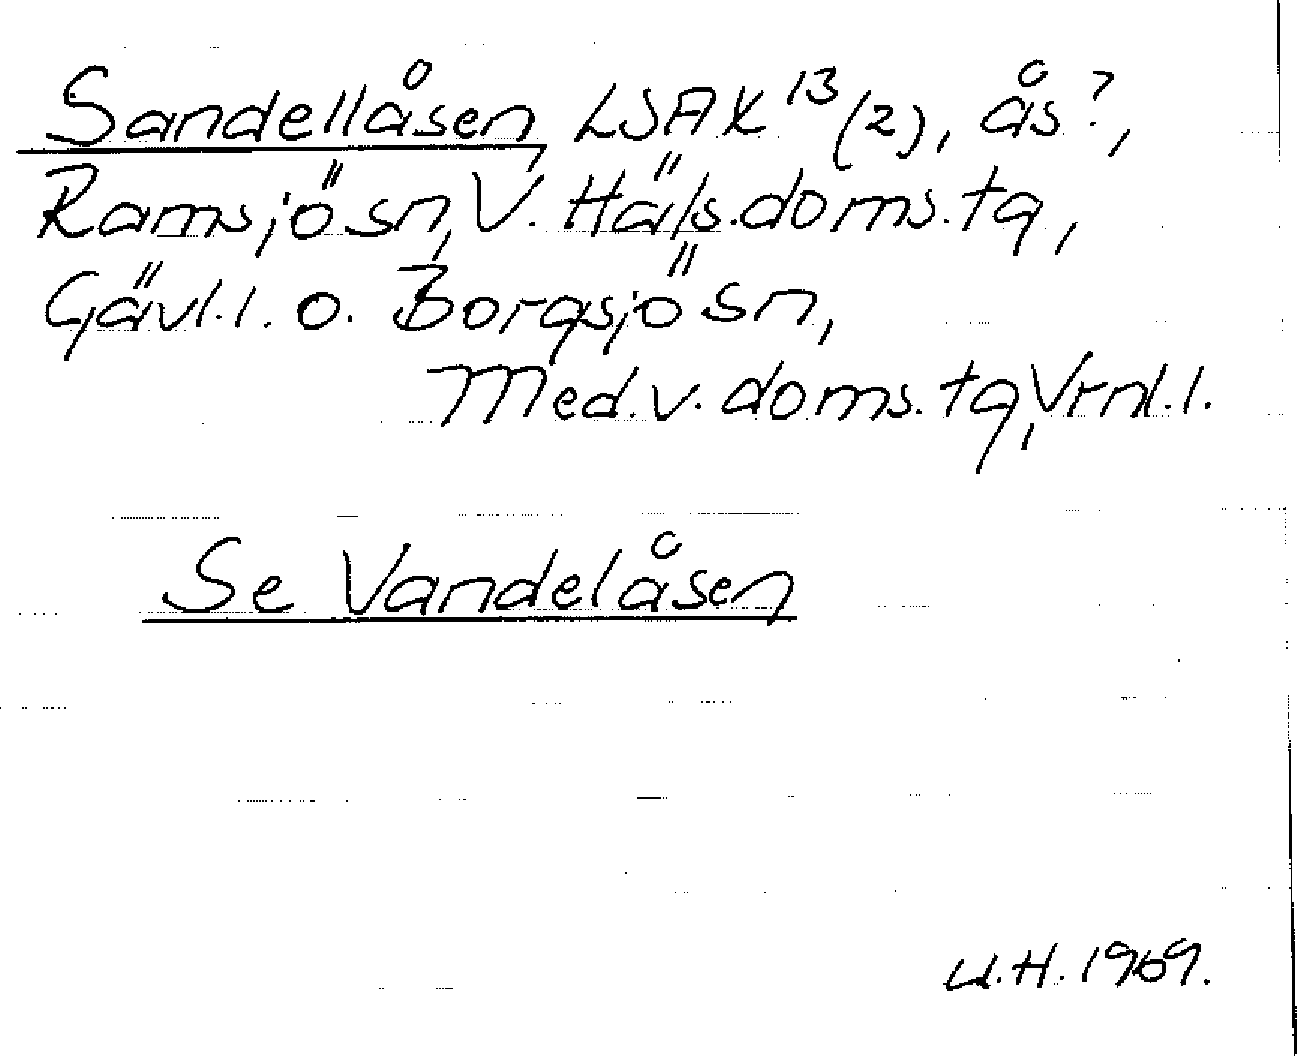 Sandellåsen, LSA X 13 (2), ås?,
Ramsjö sn, V. Häls. doms. tg,
Gävl. l. o. Borgsjö sn,
Med. v. doms. tg, Vrnl. l.
Se Vandelåsen
U.H. 1969.